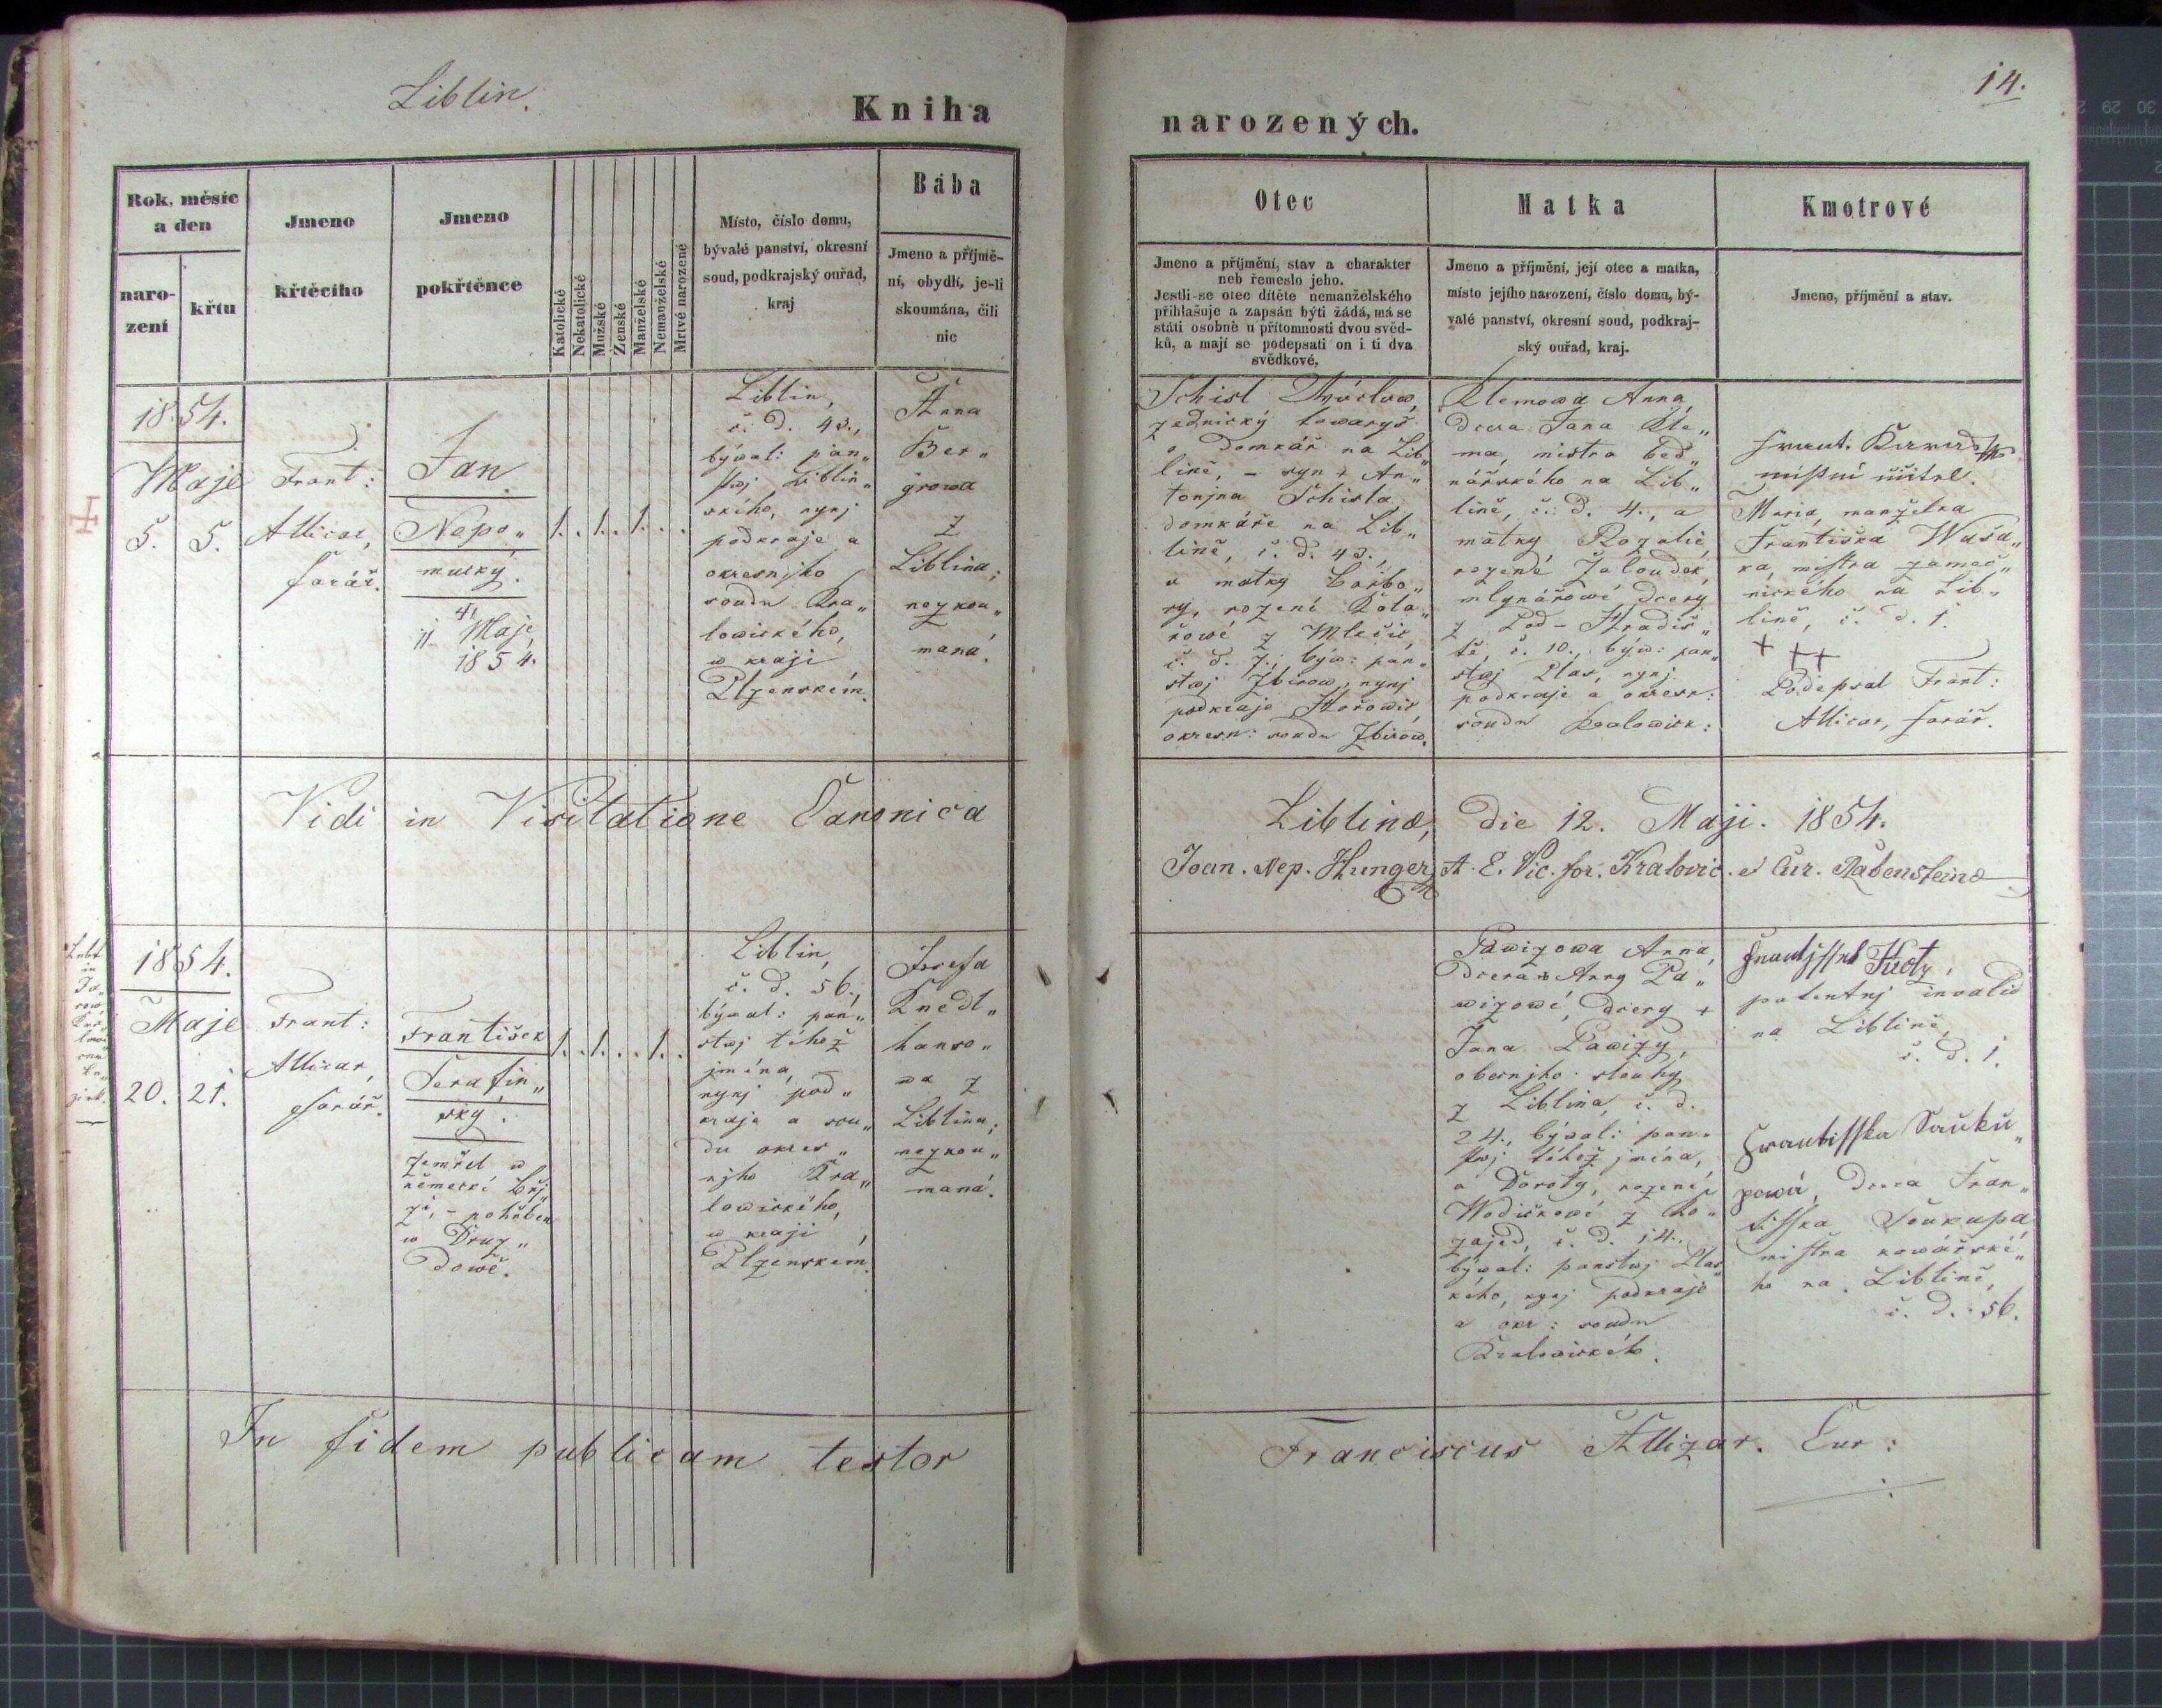 Liblin.
Kniha
narozených.
14.
Rok, měsíc
a den
naro-
zení
křtu
Jmeno
křtěcího
Jmeno
pokřtěnce
Katolické
Nekatolické
Mužské
Ženské
Manželské
Nemanželské
Mrtvě narozené
Místo, číslo domu,
bývalé panství, okresní
soud, podkrajský ouřad,
kraj
Bába
Jmeno a příjmě-
ní, obydlí, je-li
skoumána, čili
nic
Otec
Jmeno a příjmění, stav a charakter
neb řemeslo jeho.
Jestli-se otec dítěte nemanželského
přihlašuje a zapsán býti žádá, má se
státi osobně u přítomnosti dvou svěd-
ků, a mají se podepsati on i ti dva
svědkové.
Matka
Jmeno a příjmění, její otec a matka,
místo jejího narození, číslo domu, bý-
valé panství, okresní soud, podkraj-
ský ouřad, kraj.
Kmotrové
Jmeno, příjmění a stav.
1854.
Maje
5. 5.
Frant:
Allicar,
farář.
Jan
Nepo„
mucký.
Maje
1854.
1. . 1. . 1. . .
Liblin,
č. d. 43.,
býval: pan„
stwj Liblin„
ského, nynj
podkraje a
okresnjho
saudu Kra„
lowického,
w kraji
Plzenském.
Anna
Ber„
growa
z
Liblina;
nezkou„
maná.
Schisl Wáclaw,
zednický towaryš
a domkář na Lib„
lině, - syn + An„
tonjna Schisla
domkáře na Lib„
lině, č. d. 43.,
a matky Barbo„
ry, rození Kola„
řowé z Mlečic
č. d. 7., býw: pan„
stwj Zbirow, nynj
podkraje Hořowic,
okresn: soudu Zbirow.
Klemowa Anna,
dcera Jana Kle„
ma, mistra bed„
nářského na Lib„
lině, č. d. 4., a
matky Rozalie,
rozené Žaloudek,
mlynářowé dcery
z Pod-Hradiš„
tě, č. 10., býw: pan„
stwj Plas, nynj
podkraje a okresn:
soudu Kralowick:
místní učitel.
Maria, manželka
Františka Waša„
ka, mistra zameč„
nického na Lib„
lině, č. d. 1.
+ + +
Podepsal Frant:
Allicar, farář.
Vidi in Visitatione Canonica
Liblinæ, die 12. Maji. 1854.
Joan. Nep. Hunger, A. E. Vic. for. Kralovic. et Cur. Rabensteinæ
1854.
Maje
20. 21.
Frant:
Allicar,
farář.
František
Serafin„
ský.
Zemřel w
německé Břj„
zi, - pohřben
w Druz„
dowě.
1. . 1. . . 1. .
Liblin,
č. d. 56.,
býwal: pan„
stwj téhož
jména,
nynj pod„
kraje a sou„
du okres„
njho Kra„
lowického,
w kraji
Plzenskem.
Josefa
Knedl„
hanso„
wa z
Liblina;
nezkou„
maná.
Pawizowa Anna,
dcera Anny Pa„
wizowé, dcery +
Jana Pawizy,
obecnjho slouhy
z Liblina, č. d.
24., býwal: pan„
stwj téhož jména,
a Doroty, rozené
Wodičkowé z Ko„
zajed, č. d. 14.,
býwal: panstwj Plas„
kého, nynj podkraje
a okr: soudu
Kralowického.
patentnj invalid
na Liblině,
č. d. 1.
Frantisska Sauku„
pová, dcera Fran„
tisska Soukupa,
mistra kowářské„
ho na Liblině,
č. d. 56.
In fidem publicam testor
Franciscus Allizar. Cur: